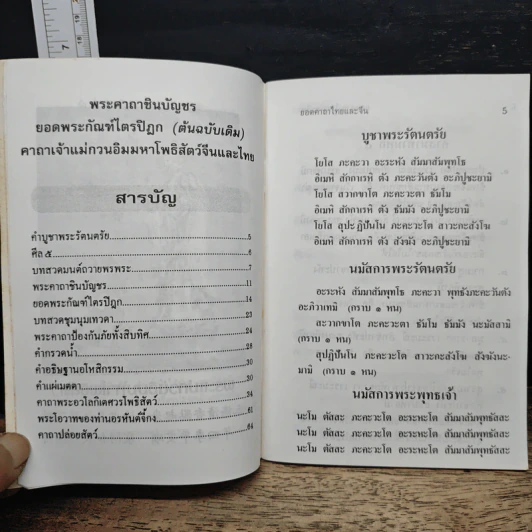 พระคาถาชินบัญชร
ยอดพระกัณฑ์ไตรปิฎก (ต้นฉบับเดิม)
คาถาเจ้าแม่กวนอิมมหาโพธิสัตว์จีนและไทย
สารบัญ
คำบูชาพระรัตนตรัย 5
ศีล ๕ 6
บทสวดมนต์ถวายพรพระ 7
พระคาถาชินบัญชร 11
ยอดพระกัณฑ์ไตรปิฎก 14
บทสวดชุมนุมเทวดา 24
พระคาถาป้องกันภัยทั้งสิบทิศ 28
คำกรวดน้ำ 30
คำอธิษฐานอโหสิกรรม 30
คำแผ่เมตตา 30
คาถาพระอวโลกิเตศวรโพธิสัตว์ 34
พระโอวาทของท่านอรหันต์จี้กง 61
คาถาปล่อยสัตว์ 64
ยอดคาถาไทยและจีน 5
บูชาพระรัตนตรัย
โยโส ภะคะวา อะระหัง สัมมาสัมพุทโธ
อิเมหิ สักกาเรหิ ตัง ภะคะวันตัง อะภิปูชะยามิ
โยโส สวากขาโต ภะคะวะตา ธัมโม
อิเมหิ สักกาเรหิ ตัง ธัมมัง อะภิปูชะยามิ
โยโส สุปะฏิปันโน ภะคะวะโต สาวะกะสังโฆ
อิเมหิ สักกาเรหิ ตัง สังฆัง อะภิปูชะยามิ
นมัสการพระรัตนตรัย
อะระหัง สัมมาสัมพุทโธ ภะคะวา พุทธังภะคะวันตัง
อะภิวาเทมิ (กราบ ๑ หน)
สะวากขาโต ภะคะวะตา ธัมโม ธัมมัง นะมัสสามิ
(กราบ ๑ หน)
สุปฏิปันโน ภะคะวะโต สาวะกะสังโฆ สังฆังนะ-
มามิ (กราบ ๑ หน)
นมัสการพระพุทธเจ้า
นะโม ตัสสะ ภะคะวะโต อะระหะโต สัมมาสัมพุทธัสสะ
นะโม ตัสสะ ภะคะวะโต อะระหะโต สัมมาสัมพุทธัสสะ
นะโม ตัสสะ ภะคะวะโต อะระหะโต สัมมาสัมพุทธัสสะ